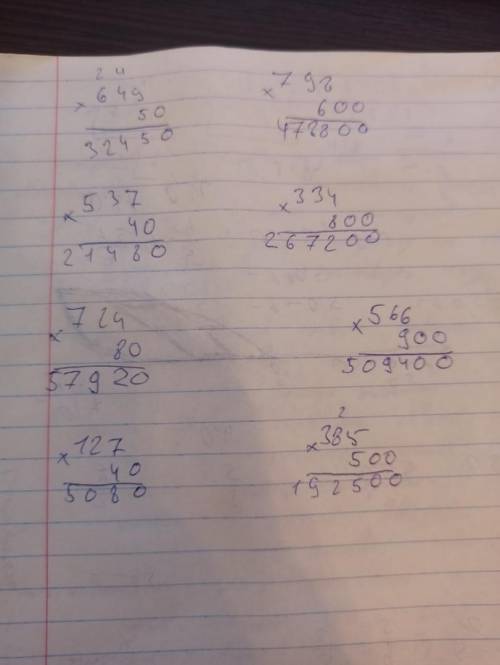 2 4
× 649
50
32450
× 798
600
478800
× 537
40
21480
× 334
800
267200
× 724
80
57920
× 566
900
509400
× 127
40
5080
2
× 385
500
192500